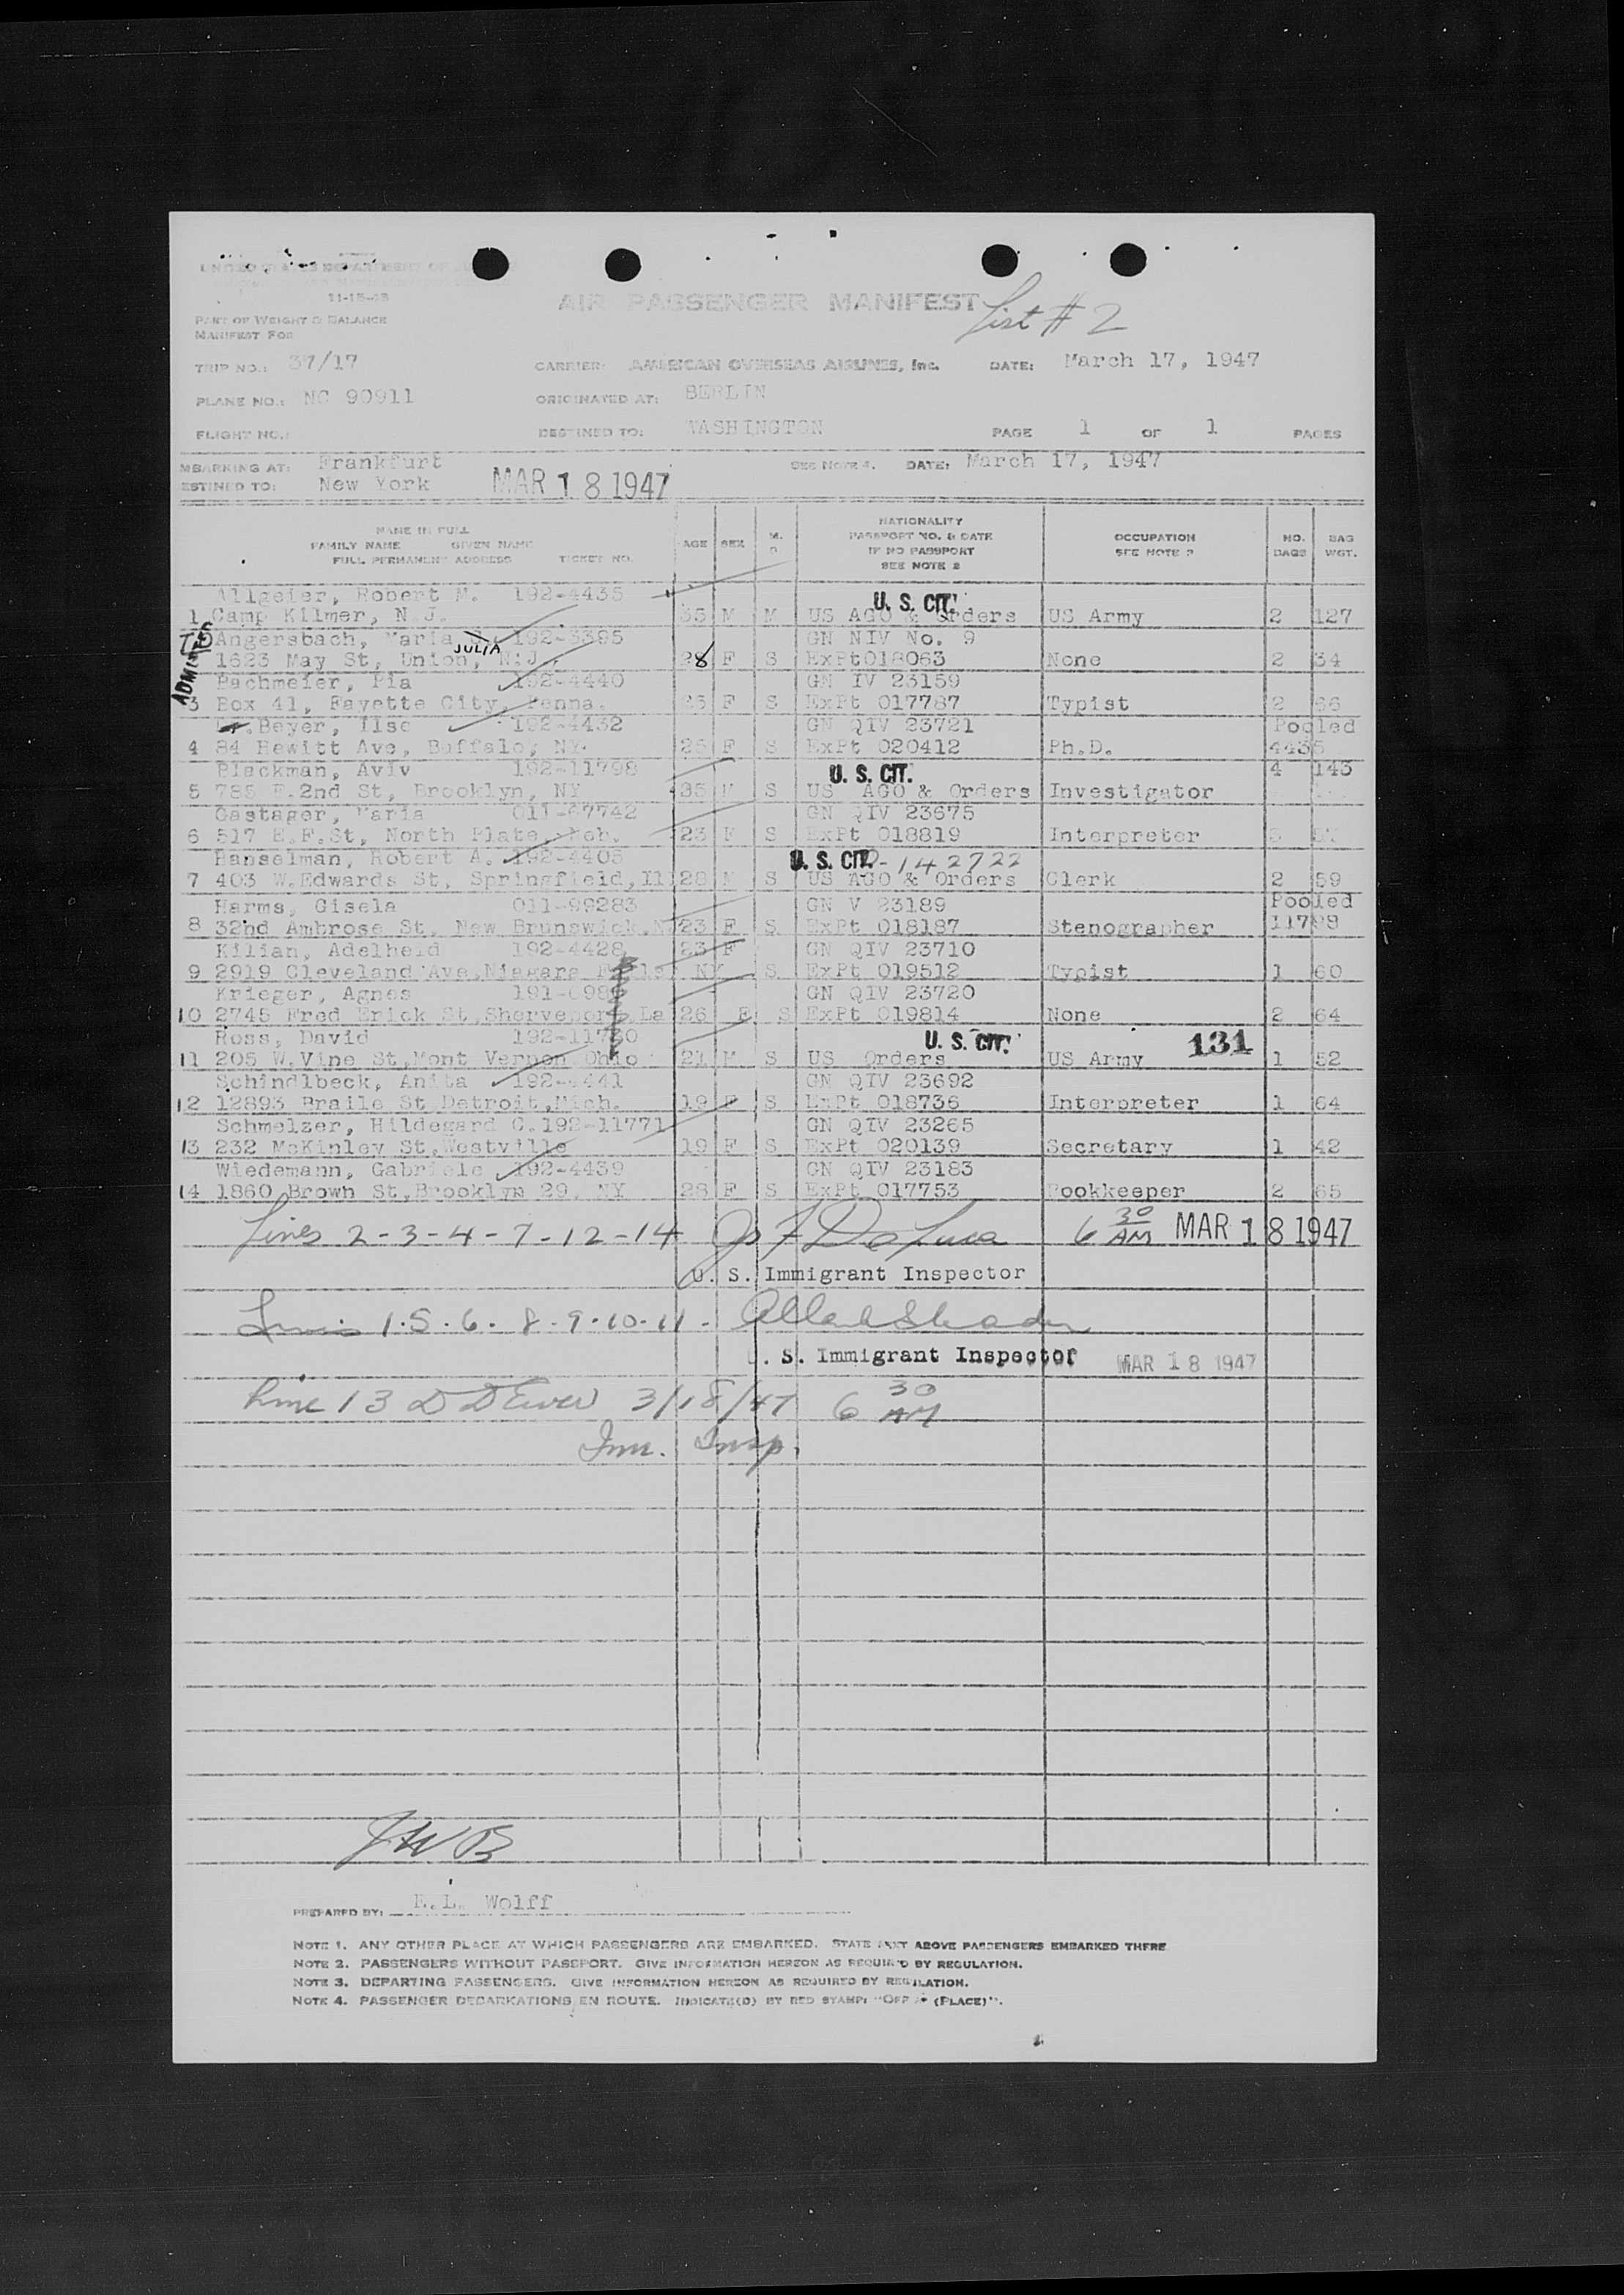 UNITED STATES DEPARTMENT OF
11-15-43
AIR PASSENGER MANIFEST List # 2
PART OF WEIGHT & BALANCE
MANIFEST FOR
TRIP NO.: 37/17 CARRIER: AMERICAN OVERSEAS AIRLINES, Inc. DATE: March 17, 1947
PLANE NO.: NC 90911 ORIGINATED AT: BERLIN
FLIGHT NO.: DESTINED TO: WASHINGTON PAGE 1 OF 1 PAGES
MBARKING AT: Frankfurt SEE NOTE 4. DATE: March 17, 1947
ESTINED TO: New York MAR 18 1947
NAME IN FULL
FAMILY NAME GIVEN NAME
FULL PERMANENT ADDRESS TICKET NO.
AGE SEX M. NATIONALITY
PASSPORT NO. & DATE
IF NO PASSPORT
SEE NOTE 2
OCCUPATION
SEE NOTE 2
NO.
BAGS
BAG
WGT.
Allgeier, Robert M. 192-4435 U. S. CIT.
1 Camp Kilmer, N.J. 35 M M US AGO & Orders US Army 2 127
ADMITTED
Angersbach, Maria 192-3395 GN NIV No. 9
JULIA
1623 May St, Union, N.J. 28 F S ExPt018063 None 2 34
Bachmeier, Pia 192-4440 GN IV 23159
3 Box 41, Fayette City, Penna. F S ExPt 017787 Typist 2 66
Beyer, Ilse 192-4432 GN QIV 23721 Pooled
4 84 Hewitt Ave, Buffalo, NY. 26 F S ExPt 020412 Ph.D. 4435
Blackman, Aviv 192-11798 U. S. CIT. 4 143
5 785 E.2nd St, Brooklyn, NY 35 M S US AGO & Orders Investigator
Gastager, Maria 011-97742 GN QIV 23675
6 517 E.F.St, North Plate, Neb. 23 F S ExPt 018819 Interpreter
Hanselman, Robert A. 192-4405 U. S. CIT. 142722
7 403 W.Edwards St, Springfield,Il 28 M S US AGO & Orders Clerk 2 59
Harms, Gisela 011-99283 GN V 23189 Pooled
8 32nd Ambrose St, New Brunswick,N 23 F S ExPt 018187 Stenographer
Kilian, Adelheid 192-4428 23 F GN QIV 23710
9 2919 Cleveland Ave,Niagara NY S ExPt 019512 Typist 1 60
Krieger, Agnes GN QIV 23720
10 2745 Fred Erick St,Sherveport,La 26 F S ExPt 019814 None 2 64
Ross, David 192-11730 U. S. CIT. 131
11 205 W.Vine St,Mont Vernon Ohio M S US Orders US Army 1 52
Schindlbeck, Anita 192-4441 GN QIV 23692
12 12893 Braile St Detroit,Mich. 19 F S ExPt 018736 Interpreter 1 64
Schmelzer, Hildegard C.192-11771 GN QIV 23265
13 232 McKinley St,Westville 19 F S ExPt 020139 Secretary 1 42
Wiedemann, Gabriele 192-4439 GN QIV 23183
14 1860 Brown St,Brooklyn 29, NY 28 F S ExPt 017753 Bookkeeper 2 65
Lines 2-3-4-7-12-14 Jos F DeLuca 6 30 AM MAR 18 1947
U. S. Immigrant Inspector
Lines 1.5.6.8.9.10.11.
. S. Immigrant Inspector MAR 18 1947
Line 13 3/18/47 6 30 AM
Imm. Insp.
JWB
PREPARED BY: E.L. Wolff
NOTE 1. ANY OTHER PLACE AT WHICH PASSENGERS ARE EMBARKED. STATE NEXT ABOVE PASSENGERS EMBARKED THERE
NOTE 2. PASSENGERS WITHOUT PASSPORT. GIVE INFORMATION HEREON AS REQUIRED BY REGULATION.
NOTE 3. DEPARTING PASSENGERS. GIVE INFORMATION HEREON AS REQUIRED BY REGULATION.
NOTE 4. PASSENGER DEBARKATIONS EN ROUTE. INDICATE(D) BY RED STAMP: "OFF (PLACE)".